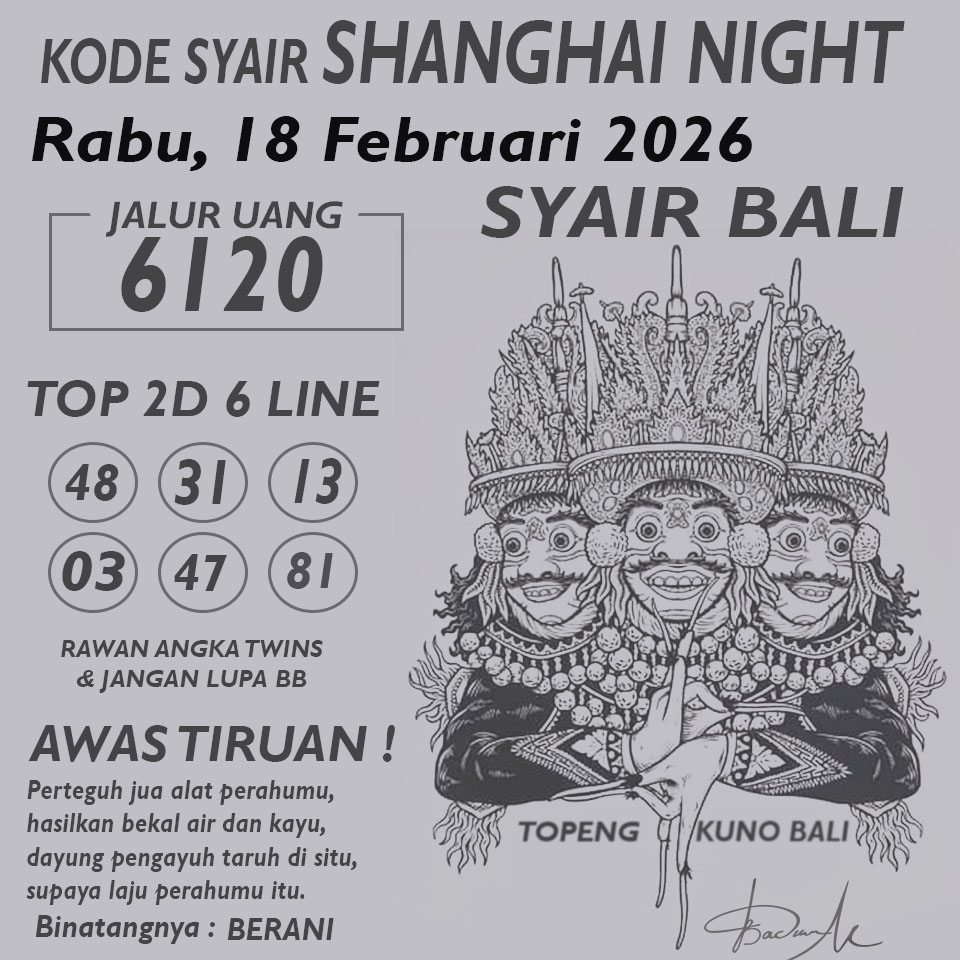 KODE SYAIR SHANGHAI NIGHT
Rabu, 18 Februari 2026
SYAIR BALI
JALUR UANG
6120
TOP 2D 6 LINE
48 31 13
03 47 81
RAWAN ANGKA TWINS
& JANGAN LUPA BB
AWAS TIRUAN !
Perteguh jua alat perahumu,
hasilkan bekal air dan kayu,
dayung pengayuh taruh di situ,
supaya laju perahumu itu.
Binatangnya : BERANI
TOPENG KUNO BALI